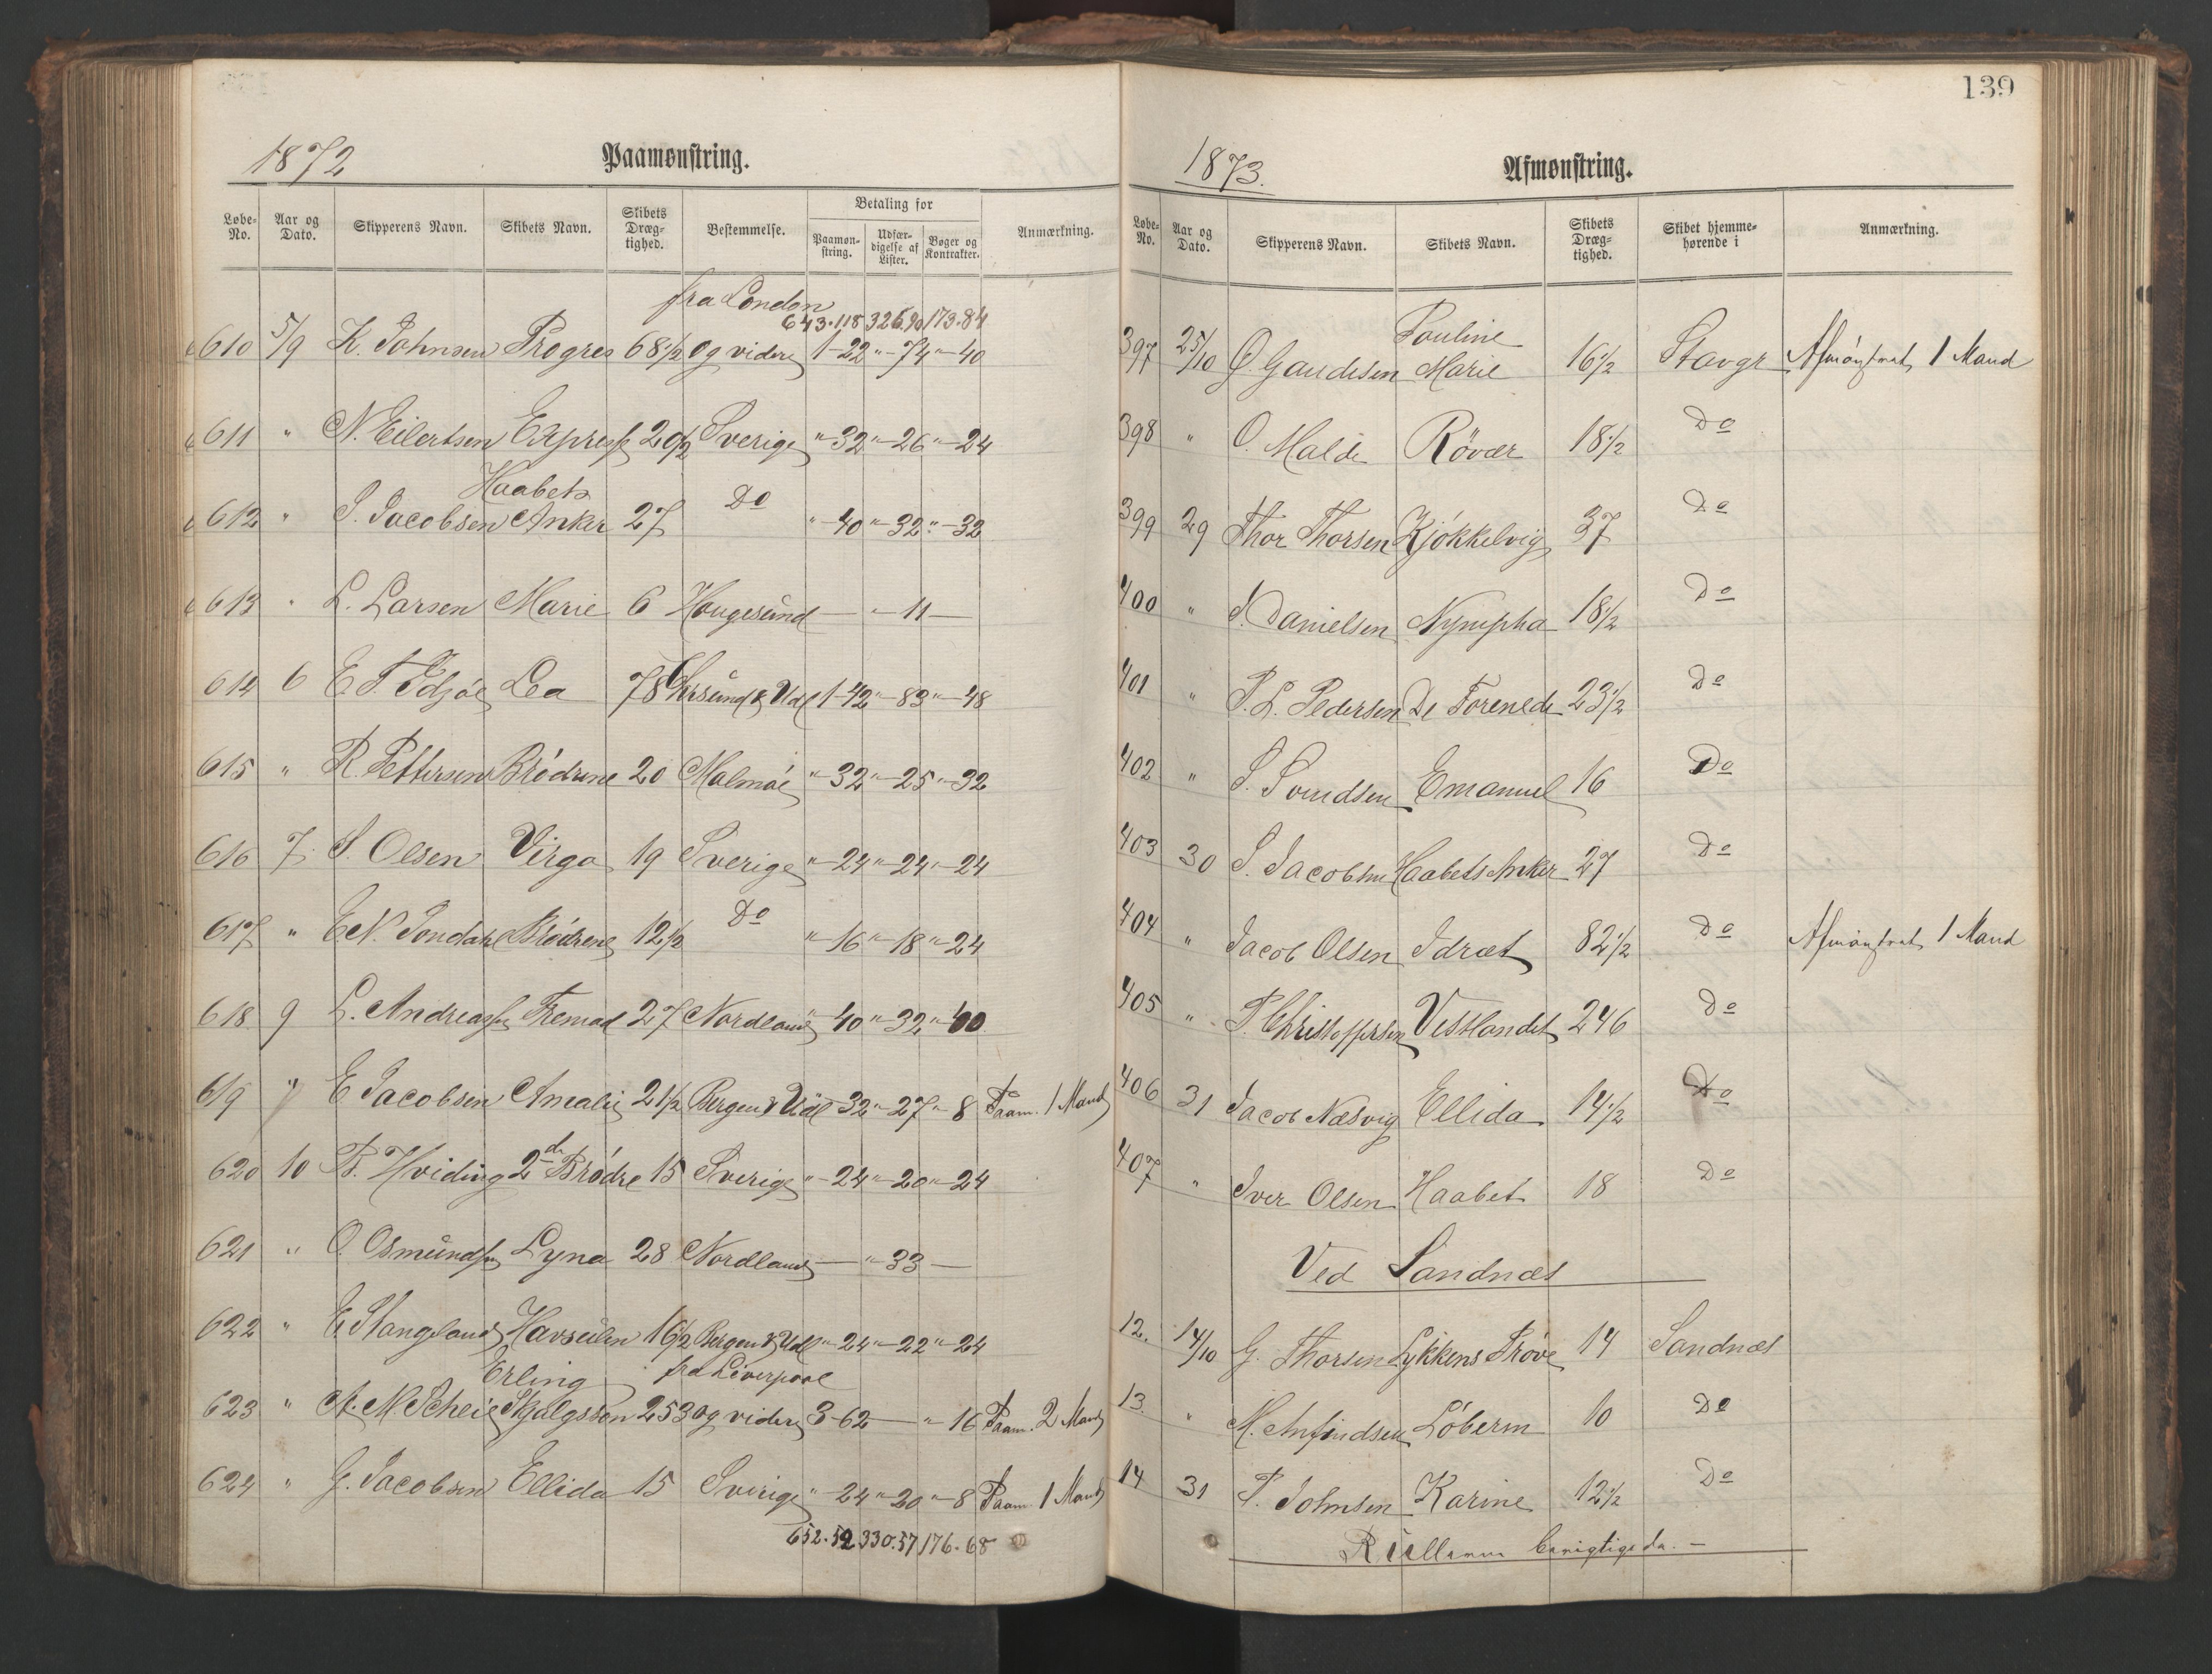 1872 Paamønstring.
Løbe-No. Aar og Dato. Skipperens Navn. Skibets Navn. Skibets Dræg-tighed. Bestemmelse. Betaling for Paamøn-string. Udfær-digelse af Lister. Bøger og Kontrakter. Anmærkning.
fra London
643.118 326.90 173.84
610 5/9 K. Johnsen Progres 68 1/2 og videre 1-22 "-74 "-40
611 " N. Eilertsen Express 20 1/2 Sverige "-32 "-26 "-24
Haabets
612 " S. Jacobsen Anker 27 Do "-40 "-32 "-32
613 " L. Larsen Marie 6 Hougesund — "-11 —
614 6 E T Lea 78 & Udl 1-42 "-83 "-48
615 " R. Pettersen Brödrene 20 Malmöe "-32 "-25 "-32
616 7 S. Olsen Virgo 19 Sverige "-24 "-24 "-24
617 " E N. Brödrene 12 1/2 Do "-16 "-18 "-24
618 9 L. Andreassen Fremad 27 Nordland "-40 "-32 "-40
619 " E Jacobsen Amalie 21 1/2 Bergen & Udl "-32 "-27 "-8 Paam. 1 Mand
620 10 B. Hviding 2de Brödre 15 Sverige "-24 "-20 "-24
621 " O. Osmundsen Lyna 28 Nordland — "-33 —
622 " E. Stangeland Havseilen 16 1/2 Bergen & Udl "-24 "-22 "-24
Erling fra Liverpool
623 " A. N. Scheie Skjalgssøn 253 og videre 3-62 — "-16 Paam. 2 Mand
624 " G. Jacobsen Ellida 15 Sverige "-24 "-20 "-8 Paam 1 Mand
652.52 330.57 176.68
139
1873. Afmønstring.
Løbe-No. Aar og Dato. Skipperens Navn. Skibets Navn. Skibets Dræg-tighed. Skibet hjemme-hørende i Anmærkning.
Pauline
397 25/10 G. Gaudesen Marie 16 1/2 Stavgr Afmönstret 1 Mand
398 " O. Malde Røvær 18 1/2 Do
399 29 Thor Thorsen Kjökkelvig 37 Do
400 " J. Danielsen Nympha 18 1/2 Do
401 " P. L. Pedersen De Forenede 23 1/2 Do
402 " S. Svendsen Emanuel 16 Do
403 30 S. Jacobsen Haabets Anker 27 Do
404 " Jacob Olsen Idræt 82 1/2 Do Afmönstret 1 Mand
405 " P. Christoffersen Vestlandet 246 Do
406 31 Jacob Næsvig Ellida 14 1/2 Do
407 " Iver Olsen Haabet 18 Do
Ved Sandnæs
12. 14/10 G. Thorsen Lykkens Pröve 14 Sandnæs
13. " M. Anfindsen Löberen 10 Do
14 31 P. Johnsen Karine 12 1/2 Do
Rullerne berigtigede. —